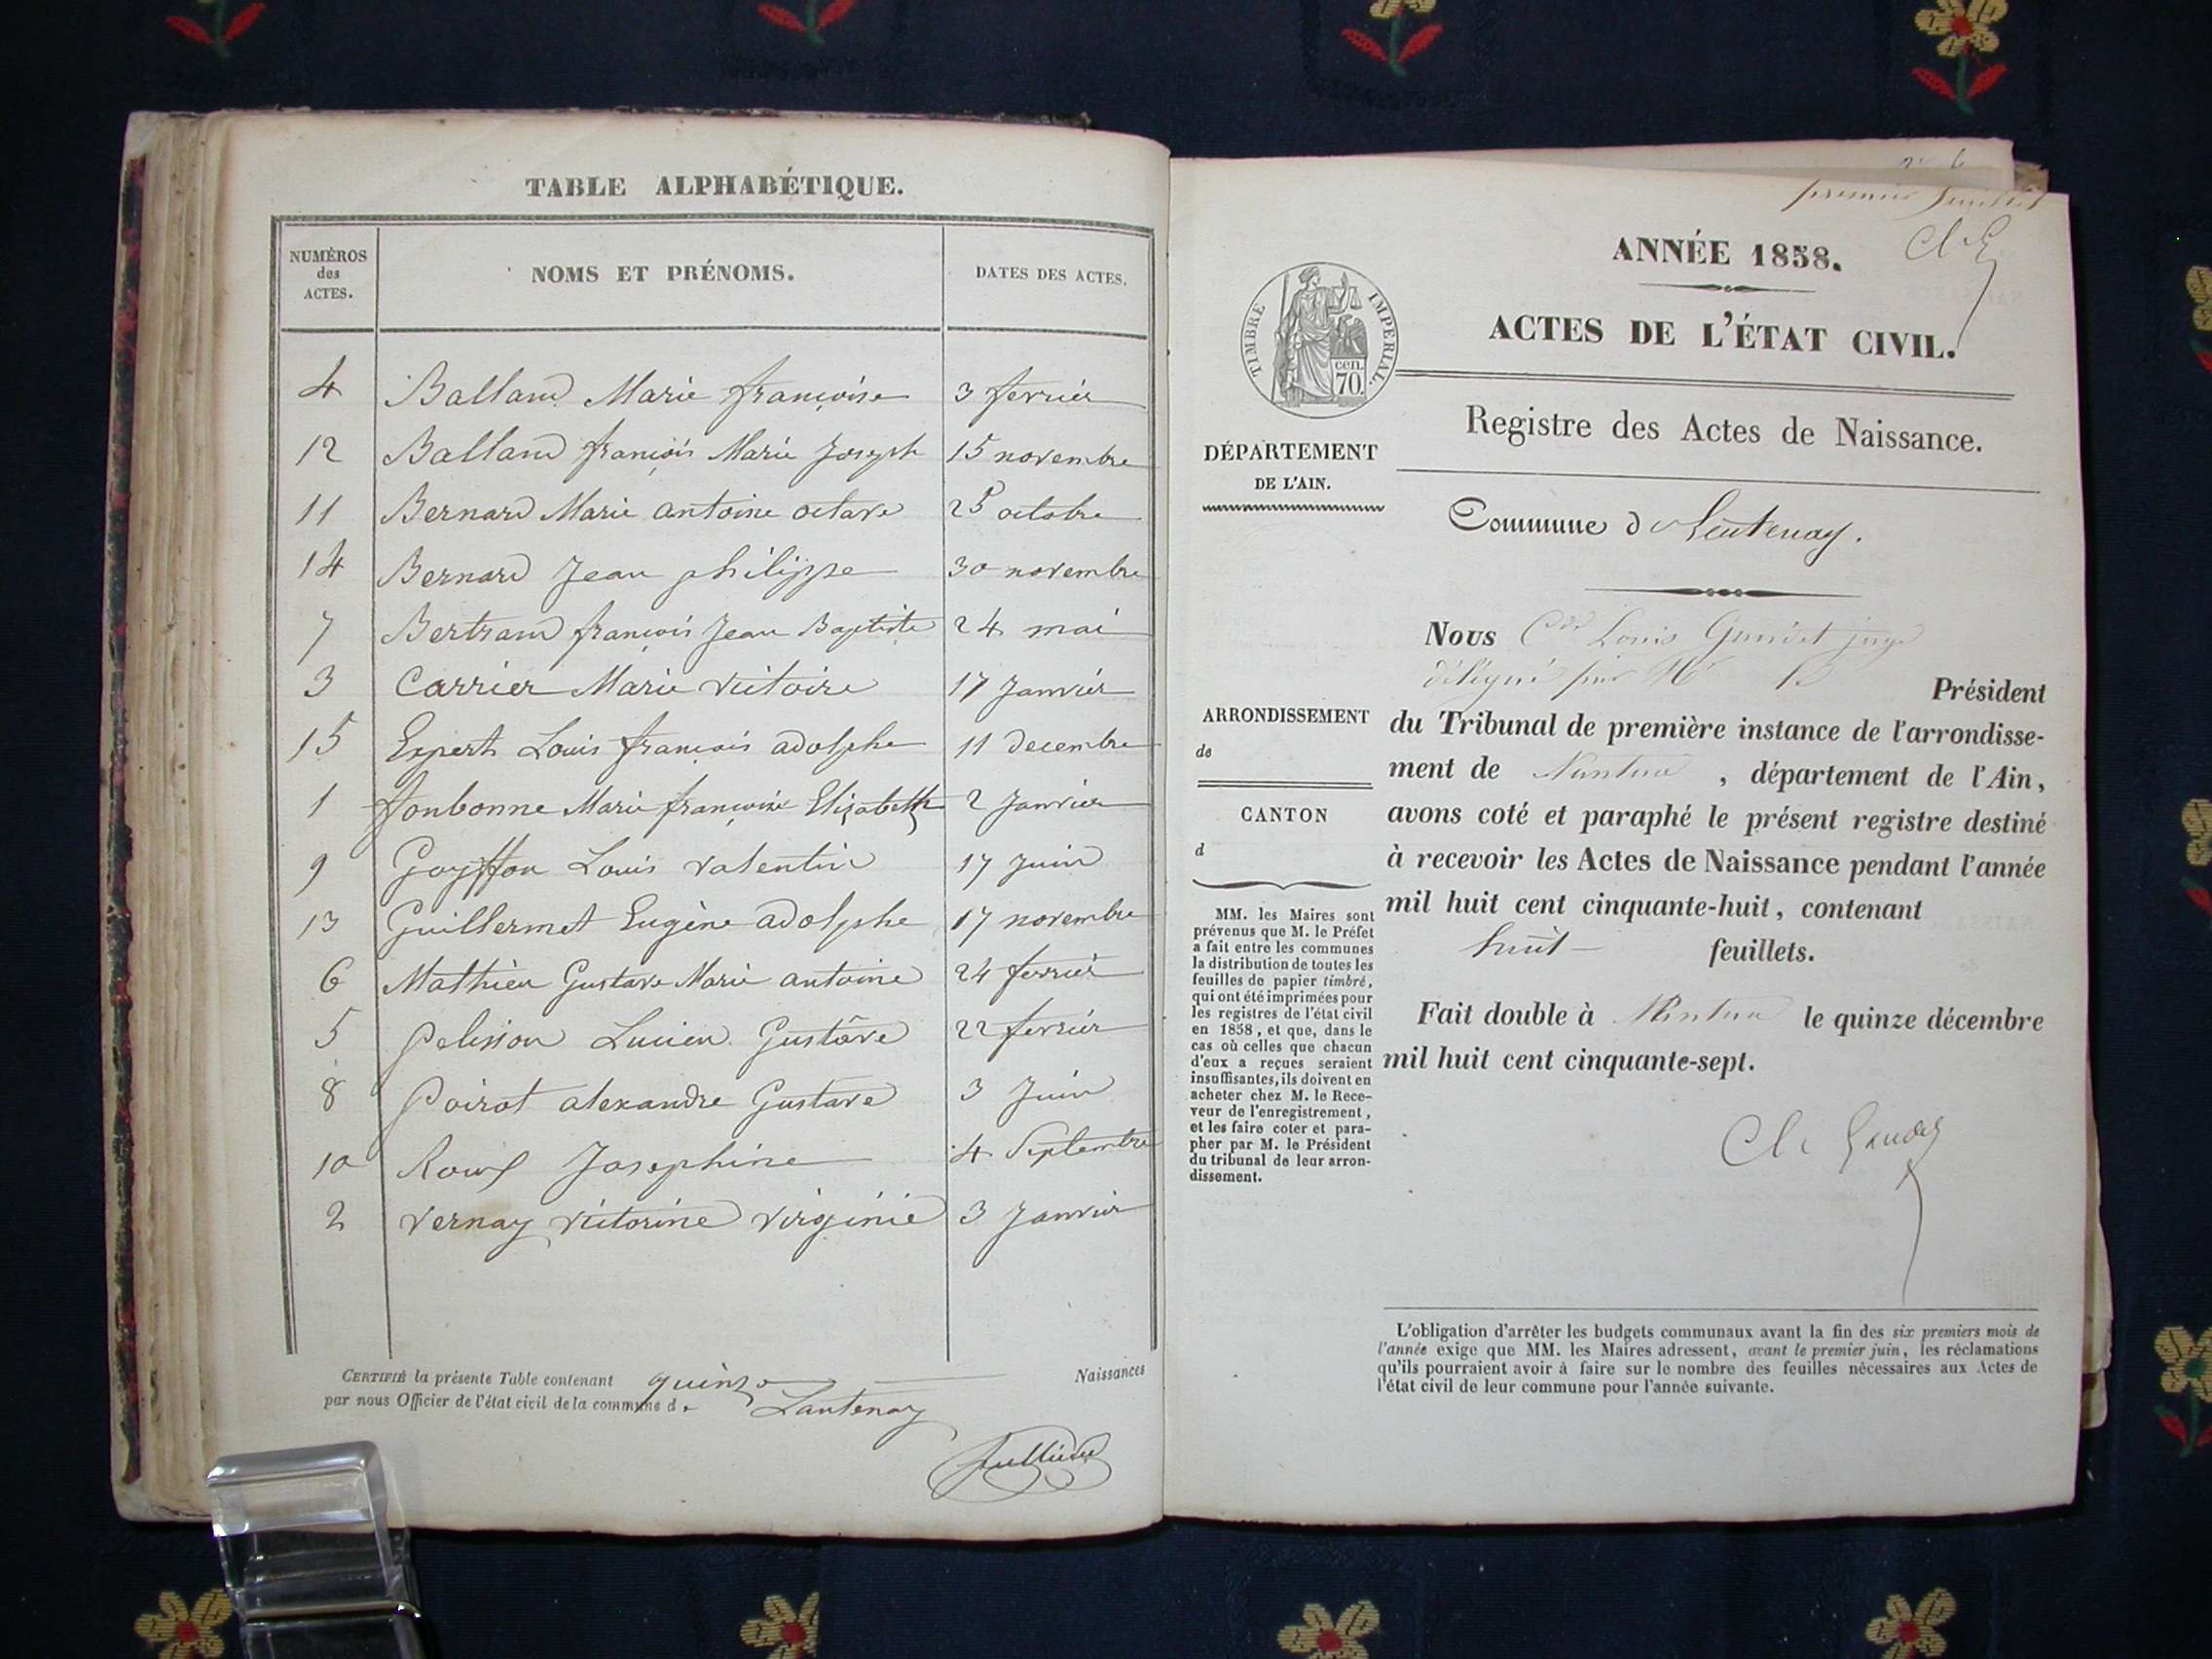 TABLE ALPHABÉTIQUE.
NUMÉROS
des
ACTES.
NOMS ET PRÉNOMS.
DATES DES ACTES.
4 Balland Marie françoise 3 fevrier
12 Balland françois Marie Joseph 15 novembre
11 Bernard Marie antoine octave 25 octobre
14 Bernard Jean philippe 30 novembre
7 Bertrand françois Jean Baptiste 24 mai
3 Carrier Marie victoire 17 Janvier
15 Expert Louis françois adolphe 11 decembre
1 fonbonne Marie françoise Elizabeth 2 Janvier
9 Goyffon Louis valentin 17 Juin
13 Guillermet Eugène adolphe 17 novembre
6 Mathieu Gustave Marie antoine 24 fevrier
5 Pelisson Lucien Gustave 22 fevrier
8 Poirot alexandre Gustave 3 Juin
10 Josephine 4 Septembre
2 vernay victorine virginie 3 Janvier
CERTIFIÉ la présente Table contenant quinze Naissances
par nous Officier de l'état civil de la commune de Lantenay
premier feuillet
ANNÉE 1858.
ACTES DE L'ÉTAT CIVIL.
TIMBRE IMPERIAL.
cen.
70.
Registre des Actes de Naissance.
DÉPARTEMENT
DE L'AIN.
Commune de Lantenay.
Nous Louis juge
délégué par Mr le Président
ARRONDISSEMENT
de
du Tribunal de première instance de l'arrondisse-
ment de Nantua, département de l'Ain,
avons coté et paraphé le présent registre destiné
à recevoir les Actes de Naissance pendant l'année
mil huit cent cinquante-huit, contenant
huit feuillets.
Fait double à Nantua le quinze décembre
mil huit cent cinquante-sept.
CANTON
d
MM. les Maires sont
prévenus que M. le Préfet
a fait entre les communes
la distribution de toutes les
feuilles de papier timbré,
qui ont été imprimées pour
les registres de l'état civil
en 1858, et que, dans le
cas où celles que chacun
d'eux a reçues seraient
insuffisantes, ils doivent en
acheter chez M. le Rece-
veur de l'enregistrement,
et les faire coter et para-
pher par M. le Président
du tribunal de leur arron-
dissement.
L'obligation d'arrêter les budgets communaux avant la fin des six premiers mois de
l'année exige que MM. les Maires adressent, avant le premier juin, les réclamations
qu'ils pourraient avoir à faire sur le nombre des feuilles nécessaires aux Actes de
l'état civil de leur commune pour l'année suivante.